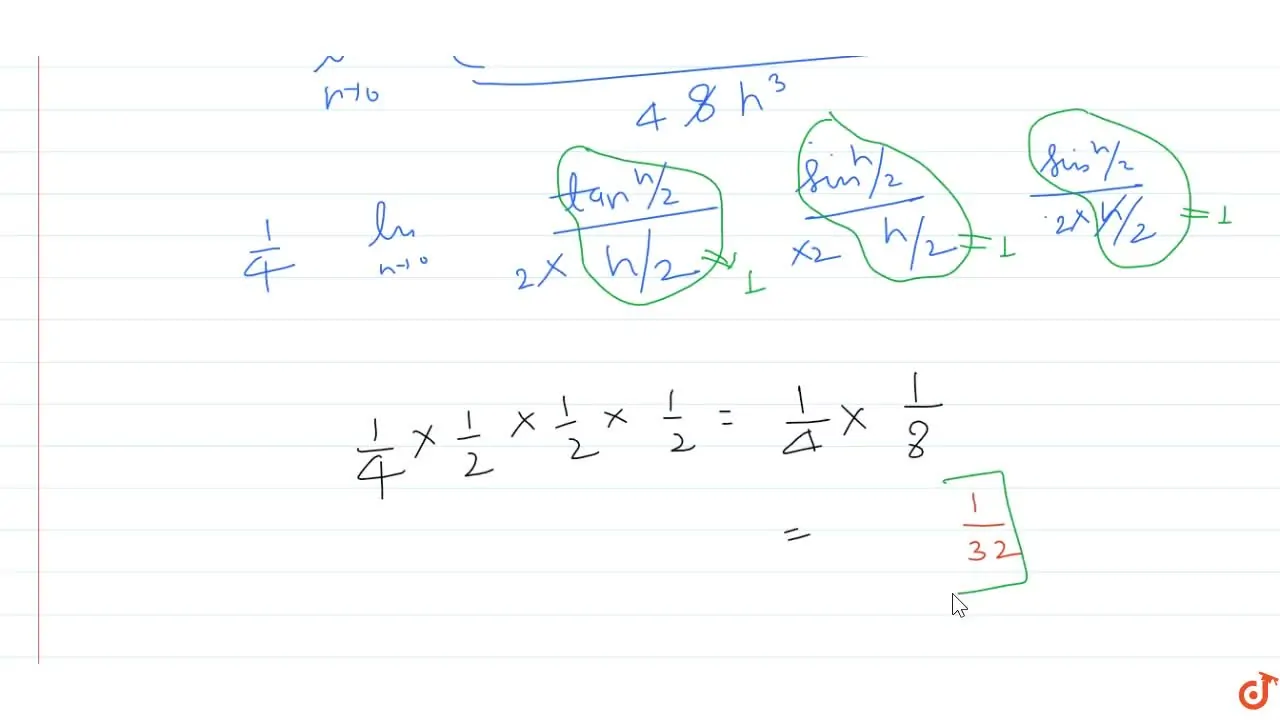 h→0
4 8 h³
1/4 lim h→0 tan h/2 / 2 × h/2 → 1 sin h/2 / ×2 h/2 = 1 sin h/2 / 2 × h/2 = 1
1/4 × 1/2 × 1/2 × 1/2 = 1/4 × 1/8
= 1/32